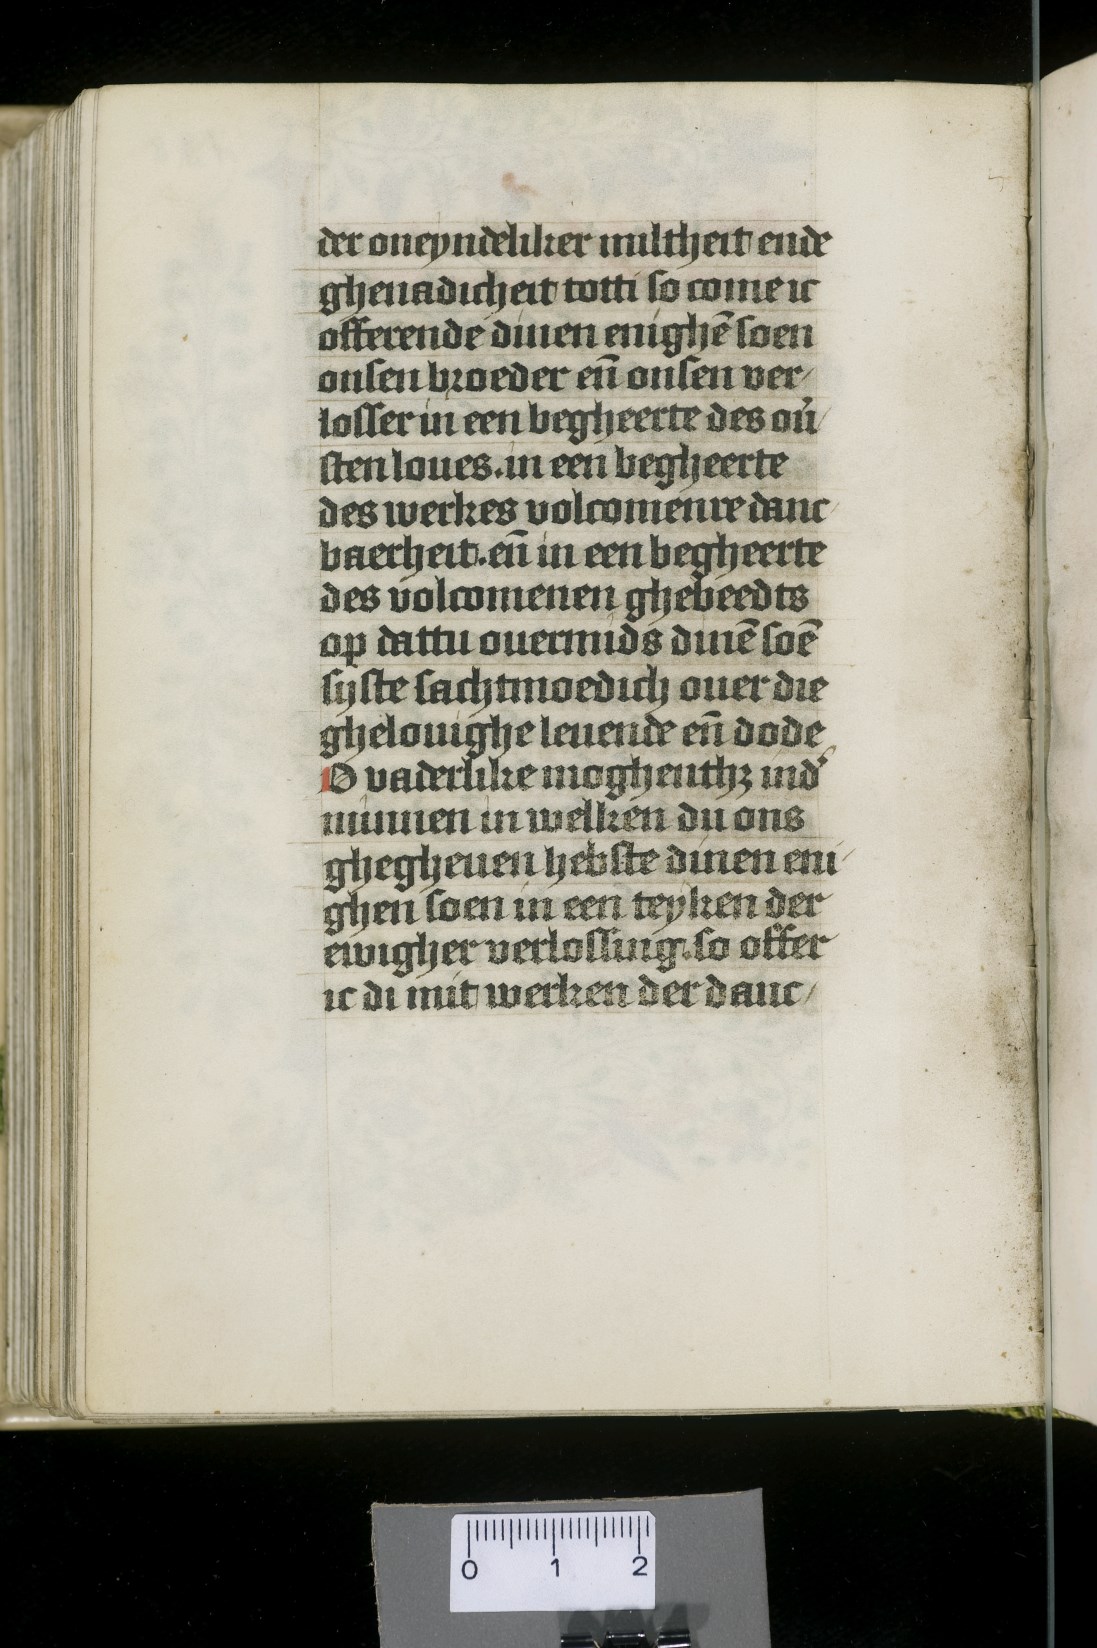 der oneyndeliker miltheit ende
ghenadicheit totti so come ic
offerende dinen enighē soen
onsen broeder en̄ onsen ver/
losser in een begheerte des ou̓/
sten loues. in een begheerte
des werkes volcomenre danc/
baerheit. en̄ in een begheerte
des volcomenen ghebeedts
op dattu ouermids dinē soē
sijste sachtmoedich ouer die
ghelouighe leuende en̄ dode
O vaderlike moghenthꝫ ind'
minnen in welken du ons
ghegheuen hebste dinen eni/
ghen soen in een teyken der
ewigher verlossing. so offer
ic di mit werken der danc/
0 1 2